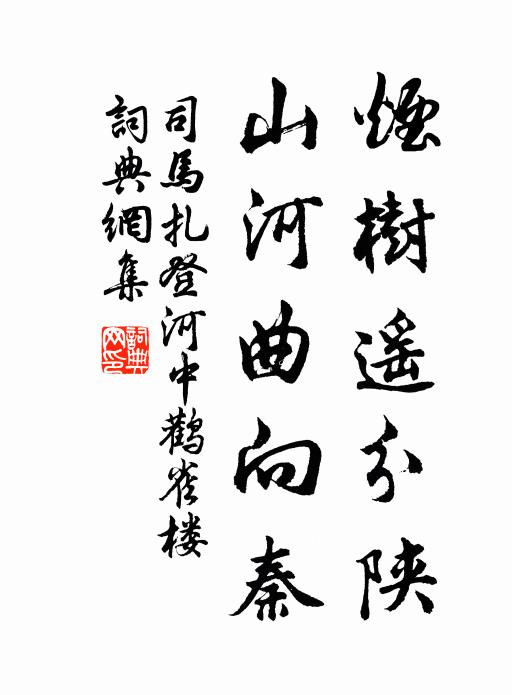 煙樹遥分陝
山河曲向秦
司馬扎登河中鸛雀楼
詞典網集
詞典网印